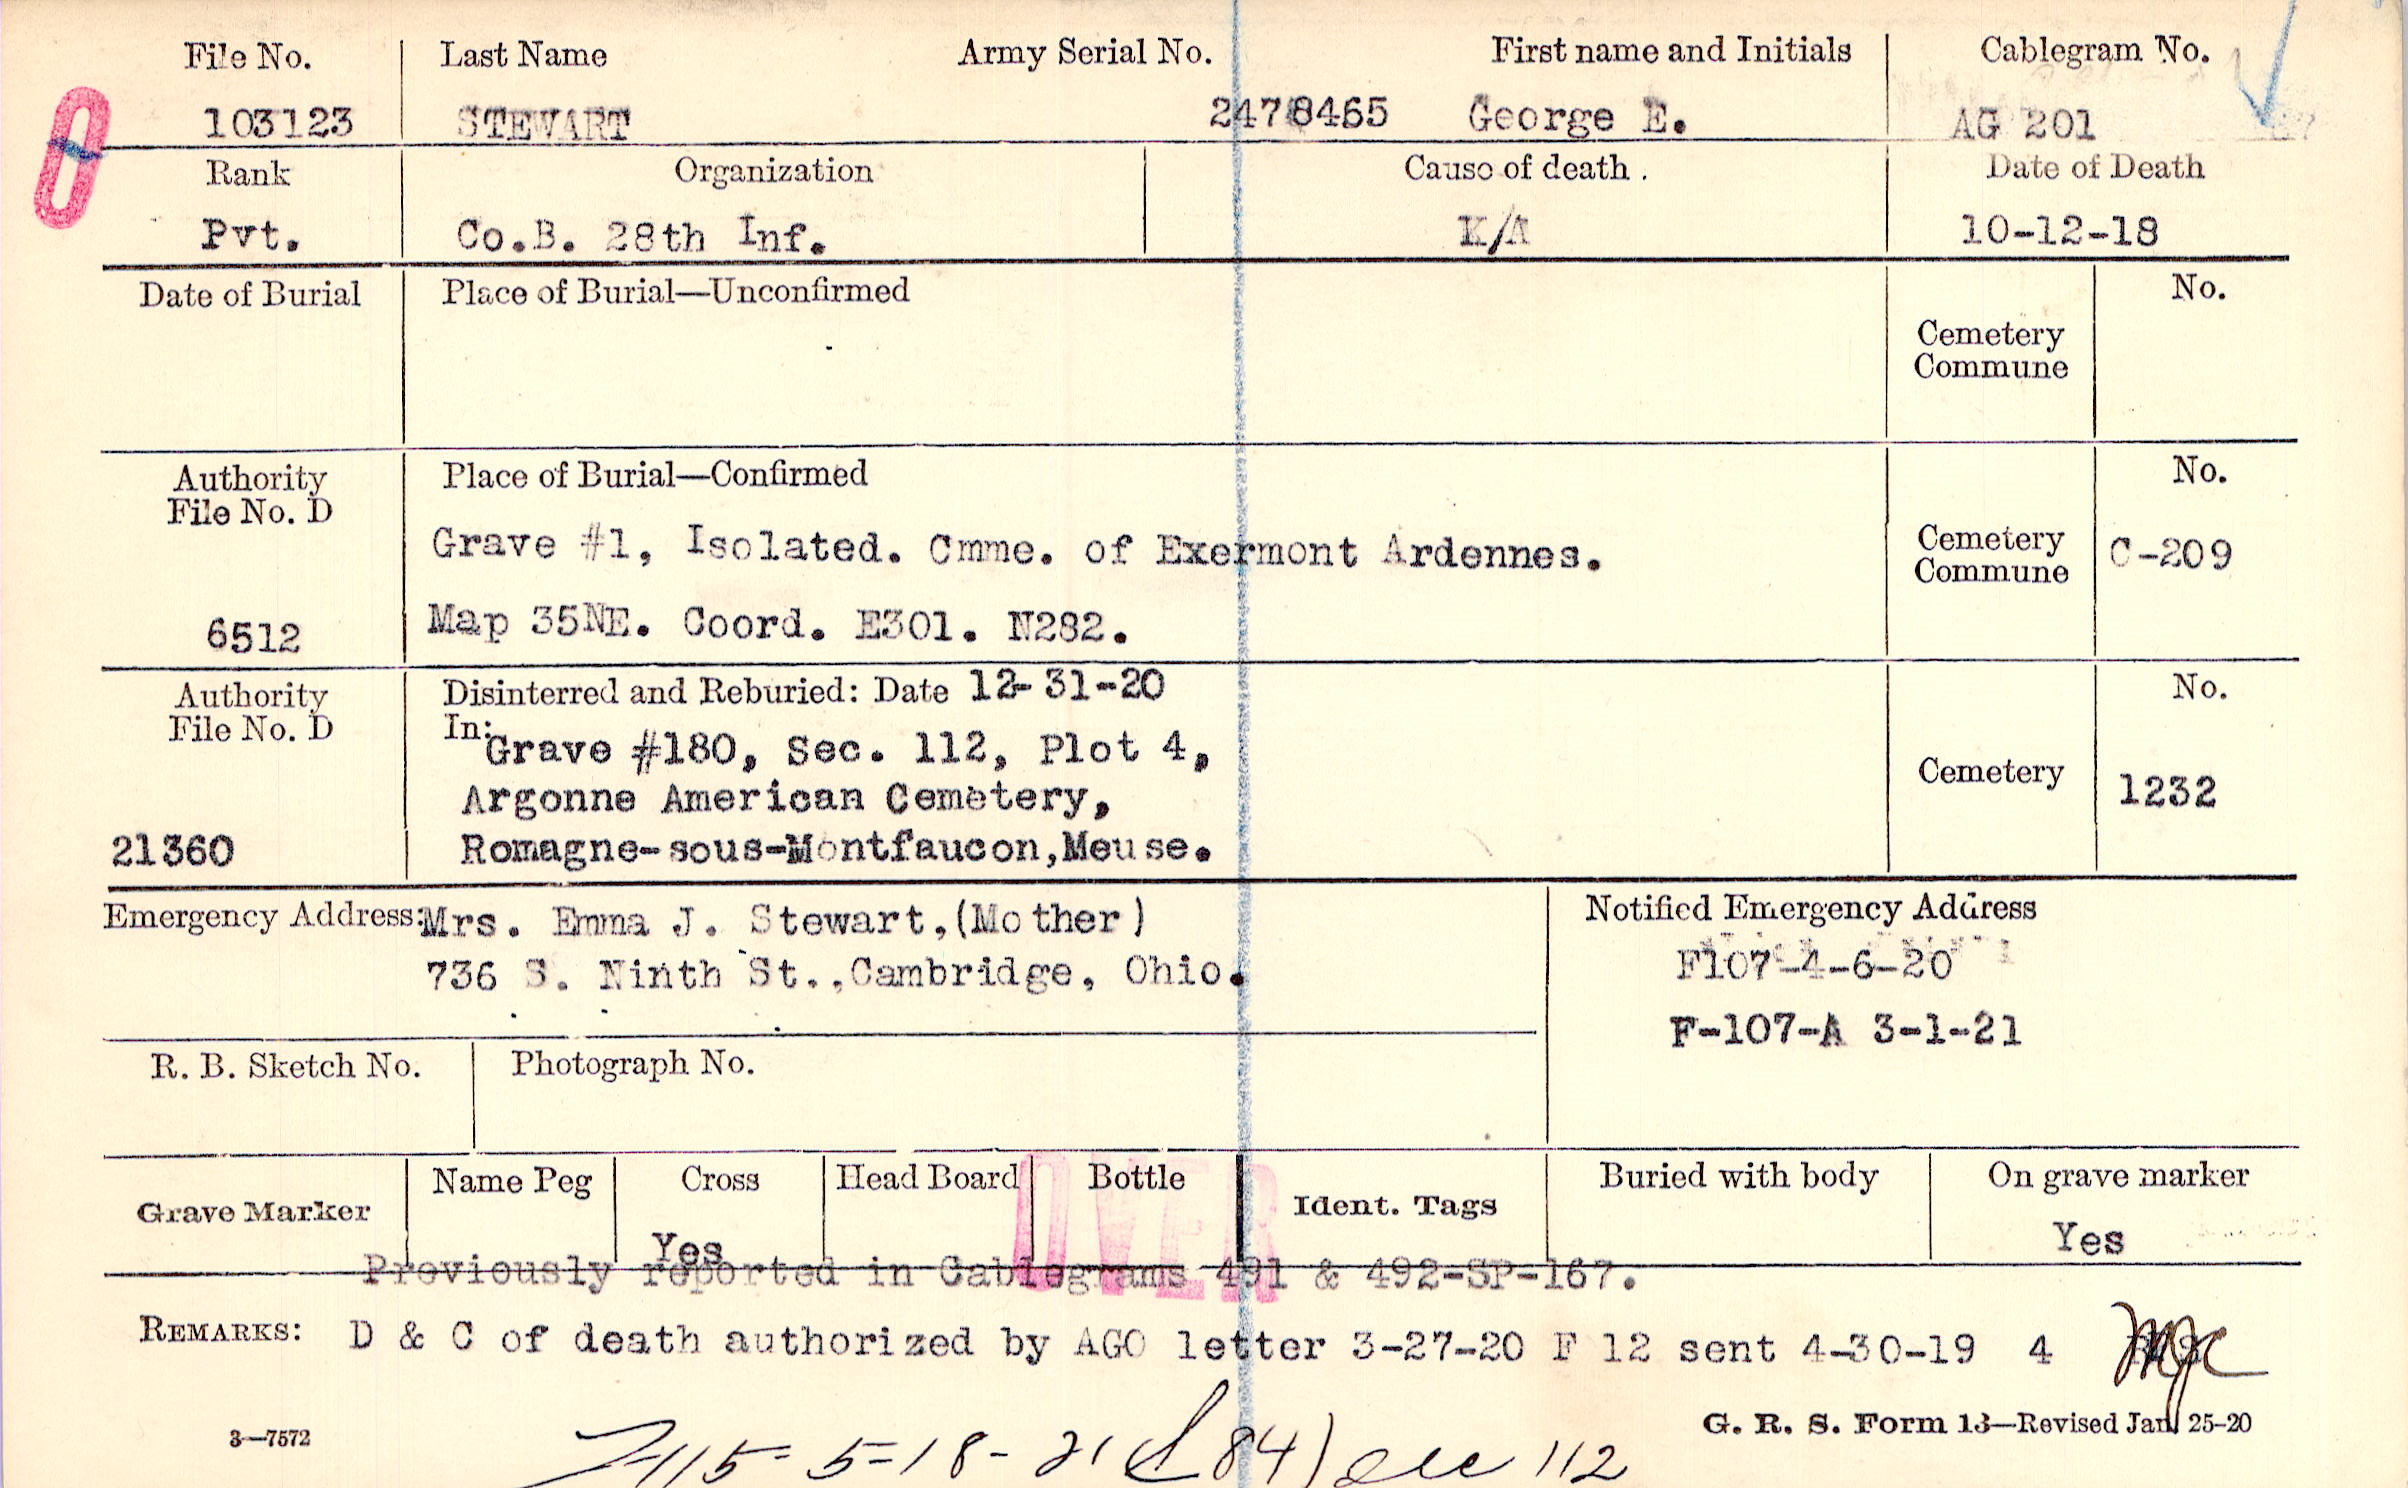 File No. Last Name Army Serial No. First name and Initials Cablegram No.
103123 STEWART 2478465 George E. AG 201
Rank Organization Cause of death. Date of Death
Pvt. Co.B. 28th Inf. K/A 10-12-18
Date of Burial Place of Burial—Unconfirmed No.
Cemetery
Commune
Authority Place of Burial—Confirmed No.
File No. D
Grave #1, Isolated. Cmme. of Exermont Ardennes. Cemetery C-209
Commune
6512 Map 35NE. Coord. E301. N282.
Authority Disinterred and Reburied: Date 12-31-20 No.
File No. D In: Grave #180, Sec. 112, Plot 4,
Argonne American Cemetery, Cemetery 1232
21360 Romagne-sous-Montfaucon,Meuse.
Emergency Address: Mrs. Emma J. Stewart,(Mother) Notified Emergency Address
736 S. Ninth St.,Cambridge, Ohio. F107-4-6-20
F-107-A 3-1-21
R. B. Sketch No. Photograph No.
Grave Marker Name Peg Cross Head Board Bottle Ident. Tags Buried with body On grave marker
Yes Yes
OVER
Previously reported in Cablegrams 491 & 492-SP-167.
REMARKS: D & C of death authorized by AGO letter 3-27-20 F 12 sent 4-30-19 4
3—7572 G. R. S. Form 13—Revised Jan. 25-20
5-18-21 84) Sec 112